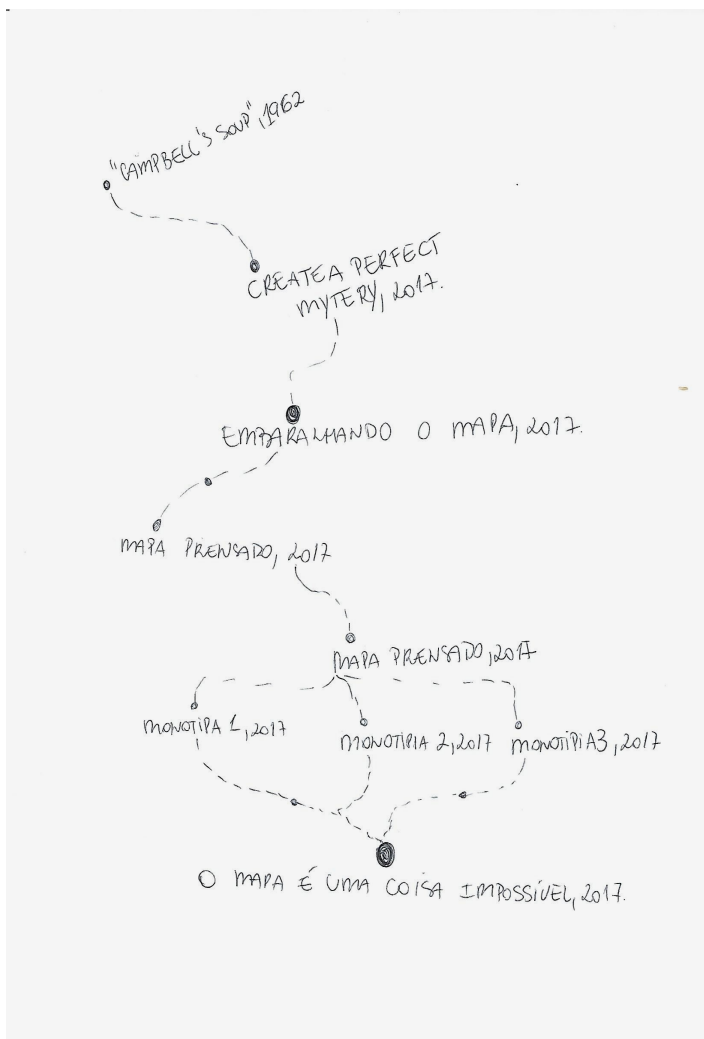 "CAMPBELL'S SOUP", 1962
CREATEA PERFECT
MYTERY, 2017.
EMBARALHANDO O MAPA, 2017.
MAPA PRENSADO, 2017
MAPA PRENSADO, 2017
MONOTIPA 1, 2017
MONOTIPIA 2, 2017
MONOTIPIA 3, 2017
O MAPA É UMA COISA IMPOSSÍVEL, 2017.